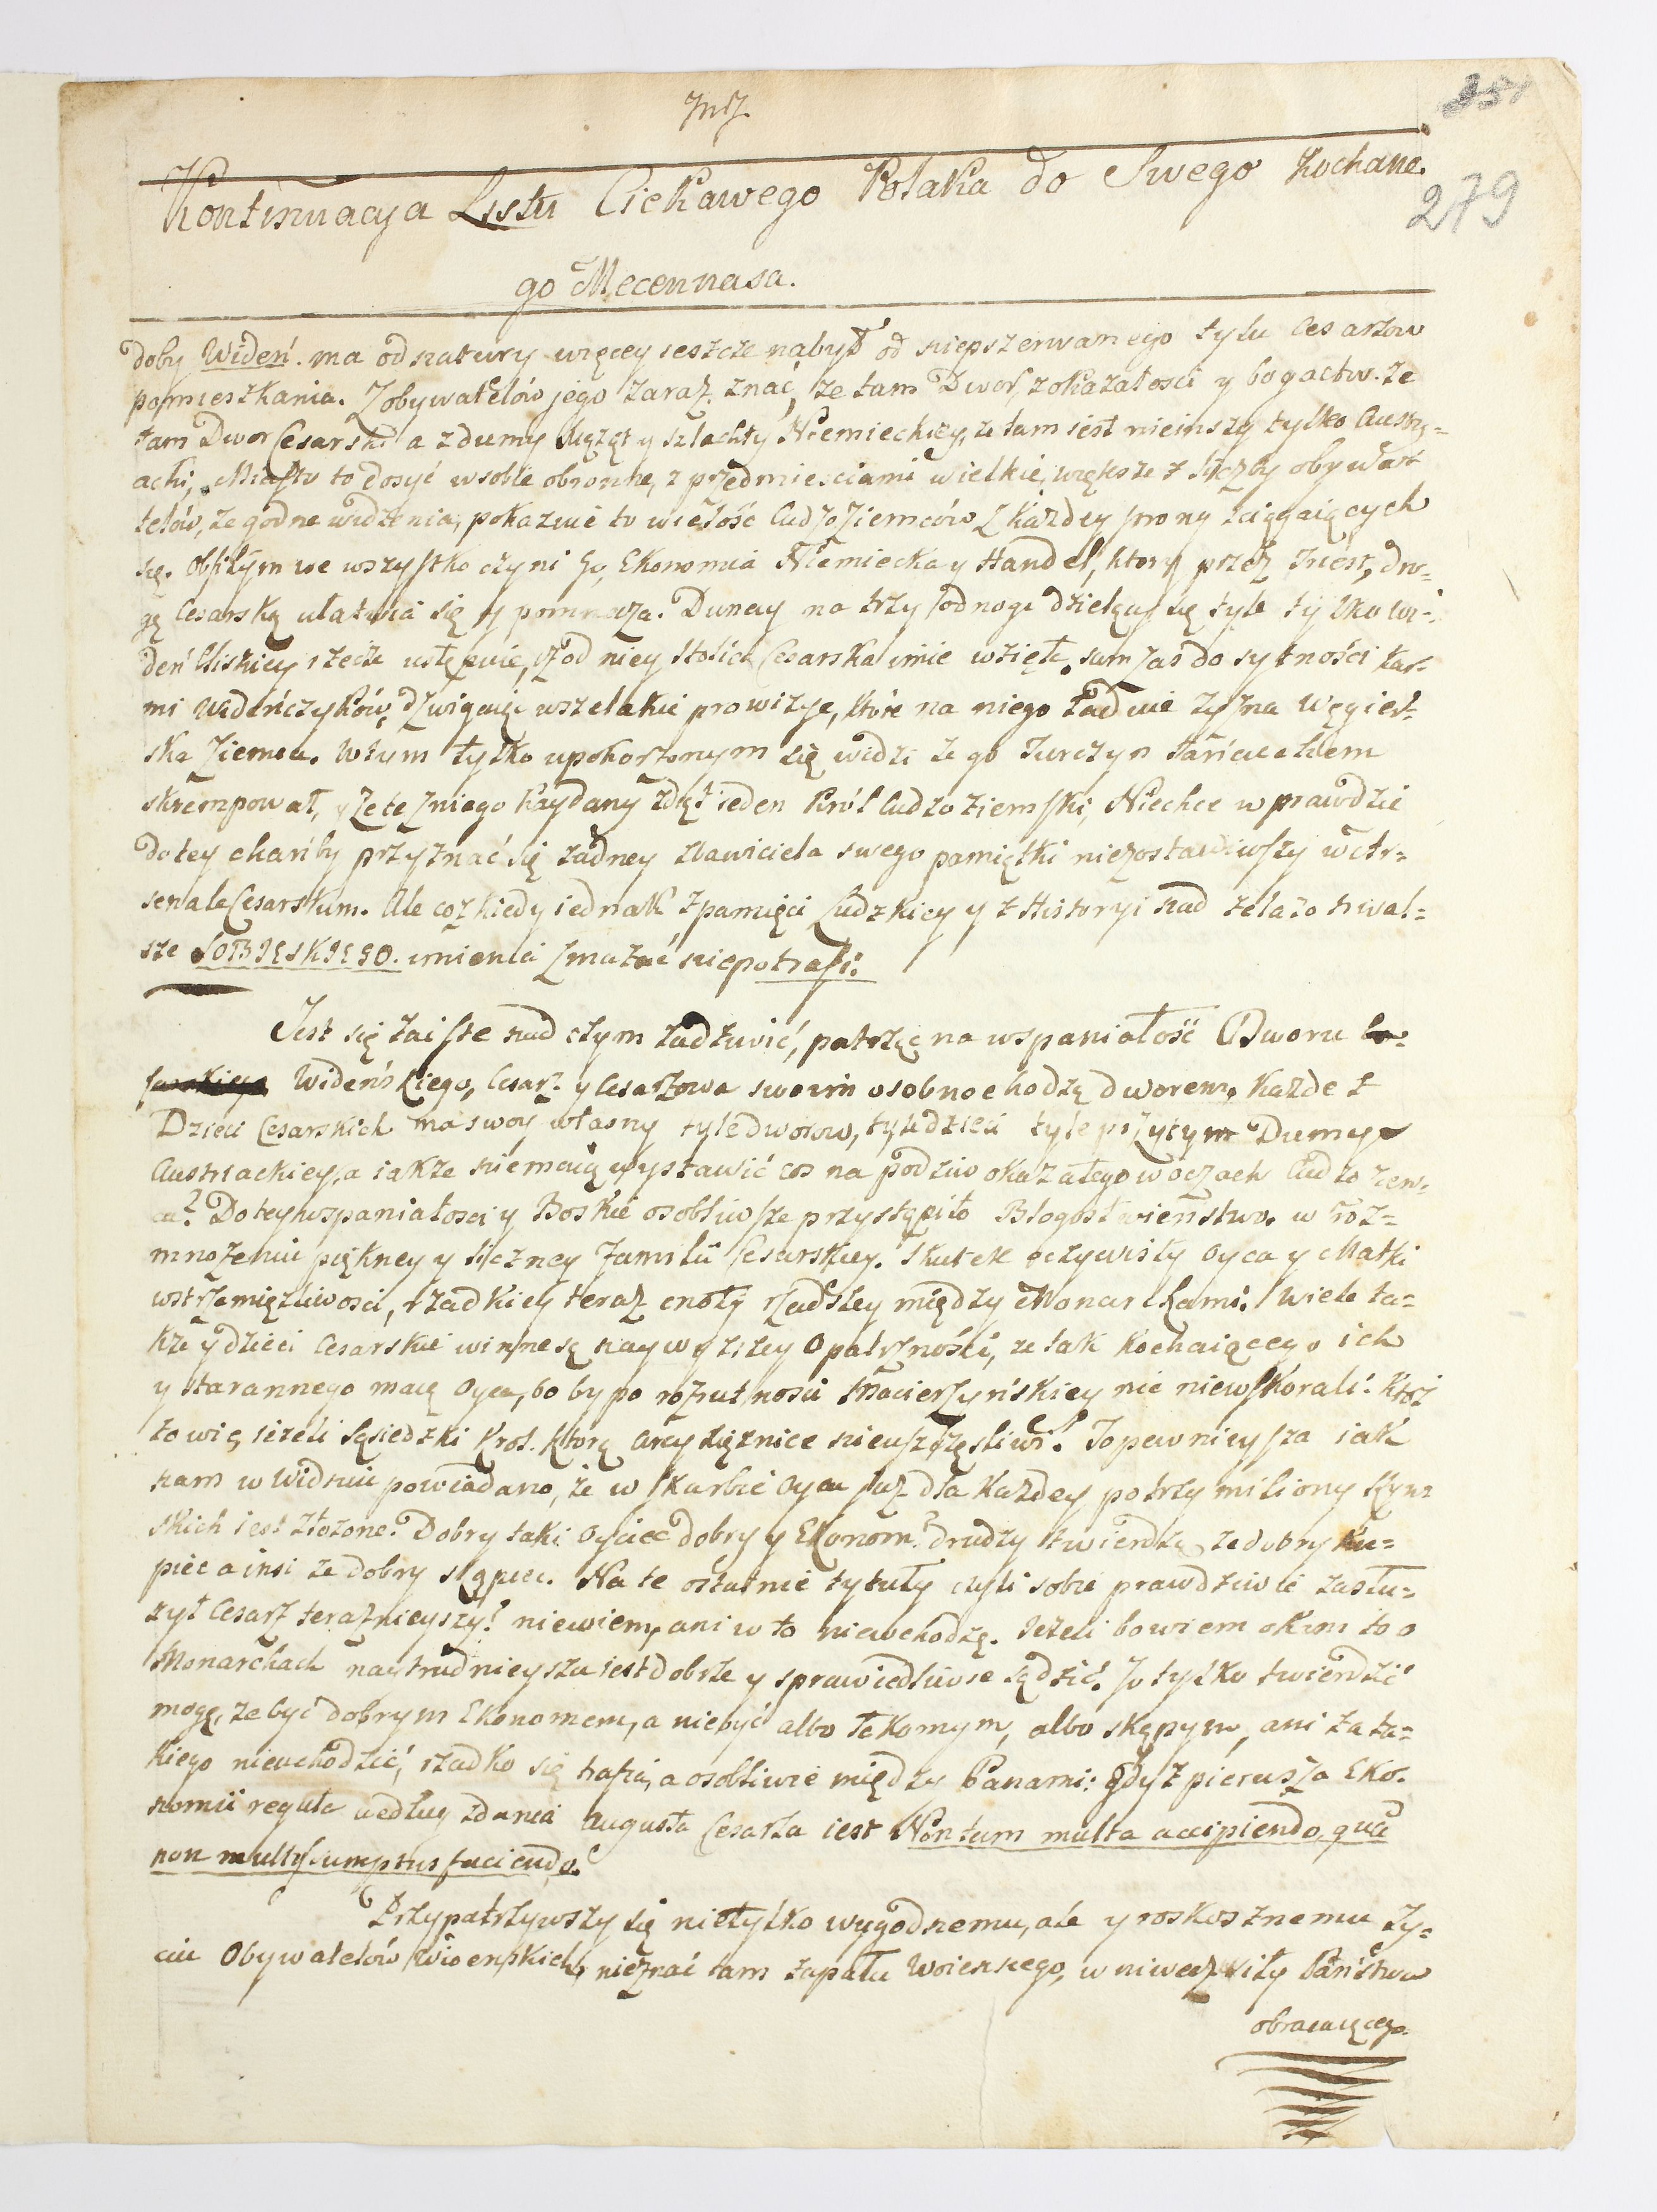 351
279
Kontinuacya Listu Ciekawego Polaka do Swego Kochane.
go Mecennasa.
doby Wideń ma od natury więcey ieszcze nabył od nieprzerwanego tylu Cesarzow
pomieszkania. Z obywatelów jego zaraz znać, że tam Dwor, z okazałosci y bogactw. że
tam Dwor Cesarski a z dumy Xiążąt y szlachty Niemieckiey, że tam iest nieinszy tylko Austry=
acki, Miasto to dosyć w sobie obronne, z przedmiesciami wielkie, większe z liczby obywa=
telów, że godne widzenia, pokazuie to wielość Cudzoziemców z każdey strony sciągaiących
się. Obfitym we wszystko czyni go, Ekonomia Niemiecka y Handel, ktory przez Triest, dro=
gę Cesarską ułatwia się y pomnaża. Dunay na trzy odnogi dzieląc się tyle tylko Wi=
deń bliskiey rzece ustępuie, iż od niey Stolica Cesarska imie wzięła, sam zas do sytności kar=
mi Wideńczyków, dzwigaiąc wszelakie prowizye, które na niego ładuie żyzna Węgier=
ska Ziemia. W tym tylko upokorzonym się widzi że go Turczyn łańcuchem
skrempował, y że te z niego kaydany zdiął ieden Król Cudzoziemski, Niechce w prawdzie
do tey chańby przyznać się żadney zbawiciela swego pamiątki niezostawiwszy w Ar=
senale Cesarskim. Ale coż kiedy iednak z pamięci Ludzkiey y z Historyi nad żelazo trwal=
sze SOBIESKIEGO. imienia zmazać niepotrafi.
Jest się zaiste nad czym zadziwić, patrząc na wspaniałość Dworu
Wideńskiego, Cesarz y Cesarzowa swoim osobno chodzą dworem. Każde z
Dzieci Cesarskich ma swoy własny tyle dworow, tyle dzieci tyle przytym Dumy
Austriackiey, a iakże niemaią wystawić cos na podziw okazałego w oczach Cudzoziem=
ca? Do tey wspaniałosci y Boskie osobliwsze przystąpiło Błogosławieństwo. w roz=
mnożeniu piękney y liczney Familii Cesarskiey. Skutek oczywisty Oyca y Matki
wstrzemięźliwosci, rzadkiey teraz cnoty rzadszey między Monarchami. Wiele ta=
kże y dzieci Cesarskie winne są naywyższey Opatrzności, że tak kochaiącego ich
y starannego maią Oyca, bo by po rozrutnosci Macierzyńskiey nic niewskorali. Ktoż
to wie, ieżeli Sąsiedzki Krol. którą Arcyxiężnice nieuszczęsliwi? To pewnieysza iak
nam w Widniu powiadano, że w skarbie Oyca iuż dla każdey po trzy miliony Ryn=
skich iest złożone. Dobry taki Oyciec dobry y Ekonom? drudzy twierdzą, że dobry ku=
piec a insi że dobry skąpiec. Na te ostatnie tytuły czyli sobie prawdziwie zasłu=
żył Cesarz teraznieyszy? niewiem, ani w to niewchodzę. Ieżeli bowiem o kim to o
Monarchach naytrudnieysza iest dobrze y sprawiedliwie sądzić. Ja tylko twierdzić
mogę, że być dobrym Ekonomem, a niebyć albo łakomym, albo skępym, ani za ta=
kiego nieuchodzić, rzadko się trafia, a osobliwie między Panami: gdyż pierwsza Eko=
nomii reguła według zdania Augusta Cesarza iest Non tam multa accipiendo, quã
non multos sumptus faciendo.
Przypatrzywszy się nietylko wygodnemu, ale y roskosznemu ży=
ciu Obywatelów Wiedenskich, nieznać tam zapału Woiennego, w niwecz siły Państwa
obracaiącego.